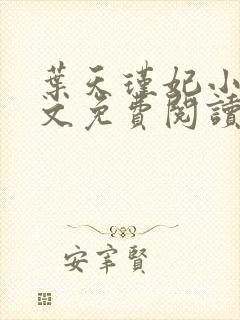 葉天瑾妃小
文免費閱讀
安宰賢